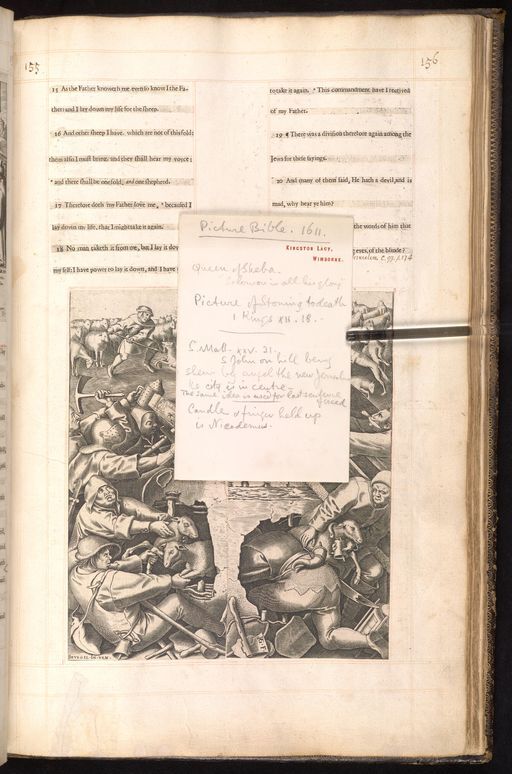 155
156
15 As the Father knoweth me even so know I the Fa-
ther: and I lay down my life for the sheep.
16 And other sheep I have, which are not of this fold:
them also I must bring, and they shall hear my voyce:
and there shall be one fold, and one shepherd.
17 Therefore doth my Father love me, because I
lay down my life, that I might take it again.
18 No man taketh it from me, but I lay it dow
my self: I have power to lay it down, and I have
to take it again. This commandment have I received
of my Father.
19 ¶ There was a division therefore again among the
Jews for these sayings.
20 And many of them said, He hath a devil, and is
mad, why hear ye him?
the words of him that
eyes of the blinde?
Picture Bible. 1611.
KINGSTON LACY,
WIMBORNE.
Queen of Sheba.
Solomon in all his glory
Picture of Stoning to death
1 Kings XII. 18.
S. Matt. XXV. 31.
S John on hill being
shewn by angel the new Jerusalem
city is in centre
The same idea is used for last sentence
Creed
Candle & finger held up
is Nicodemus.
BRVEGEL INVEN